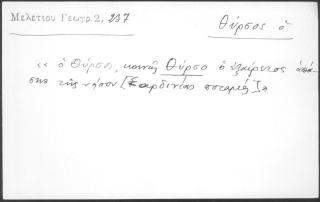 Μελετίου Γεωγρ. 2, 237
Θύρσος ὁ
« ὁ Θύρσος, κοινῶς Θύρσο ὁ ἐξαίρετος ἁπά-
σης τῆς νήσου [Σαρδινίας ποταμός] »